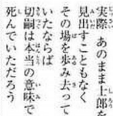 実際 あのまま士郎を
見出すこともなく
その場を歩み去って
いたならば
切嗣は本当の意味で
死んでいただろう